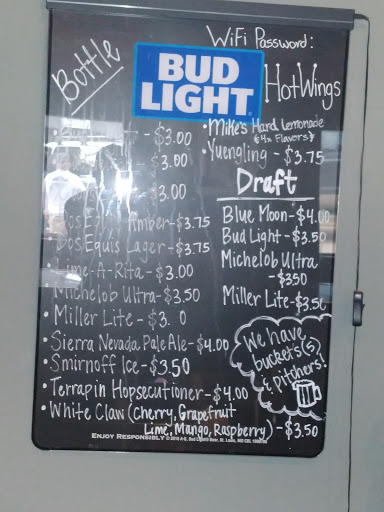 WiFi Password:
HotWings
Bottle
BUD
LIGHT
$3.00
$3.00
$3.00
Amber-$3.75
Dos Equis Lager-$3.75
Lime-A-Rita-$3.00
Michelob Ultra-$3.50
• Miller Lite-$3. 0
• Sierra Nevada Pale Ale-$4.00
• Smirnoff Ice-$3.50
• Terrapin Hopsecutioner-$4.00
• White Claw (Cherry, Grapefruit
Lime, Mango, Raspberry)-$3.50
• Mike's Hard Lemonade
{4x Flavors}
• Yuengling-$3.75
Draft
Blue Moon-$4.00
Bud Light-$3.50
Michelob Ultra
-$350
Miller Lite-$3.50
We have
buckets(5)
& pitchers!
ENJOY RESPONSIBLY